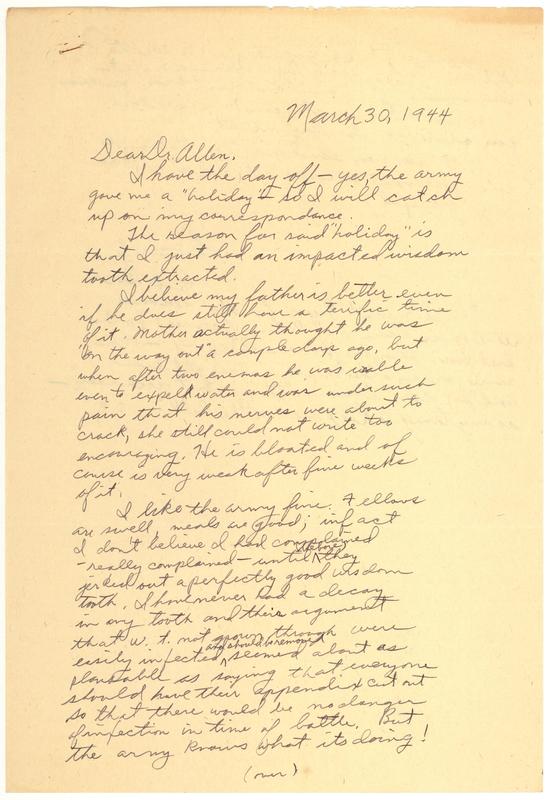 March 30, 1944
Dear Dr. Allen,
I have the day off — yes, the army
gave me a "holiday" — so I will catch
up on my correspondance.
The reason for said "holiday" is
that I just had an impacted wisdom
tooth extracted.
I believe my father is better even
if he does still have a terific time
of it. Mother actually thought he was
"on the way out" a couple days ago, but
when after two enemas he was unable
even to expell water and was under such
pain that his nerves were about to
crack, she still could not write too
encouraging. He is bloated and of
course is very weak after five weeks
of it.
I like the army fine. Fellows
are swell, meals are good; in fact
I don't believe I had complained
- really complained - until they
jerked out a perfectly good wisdom
tooth. I have never had a decay
in my tooth and their argument
that w. t. not grown through were
easily infected and should be removed, seemed about as
plausable as saying that everyone
should have their appendix cut out
so that there would be no danger
of infection in time of battle. But
the army knows what its doing!
(over)